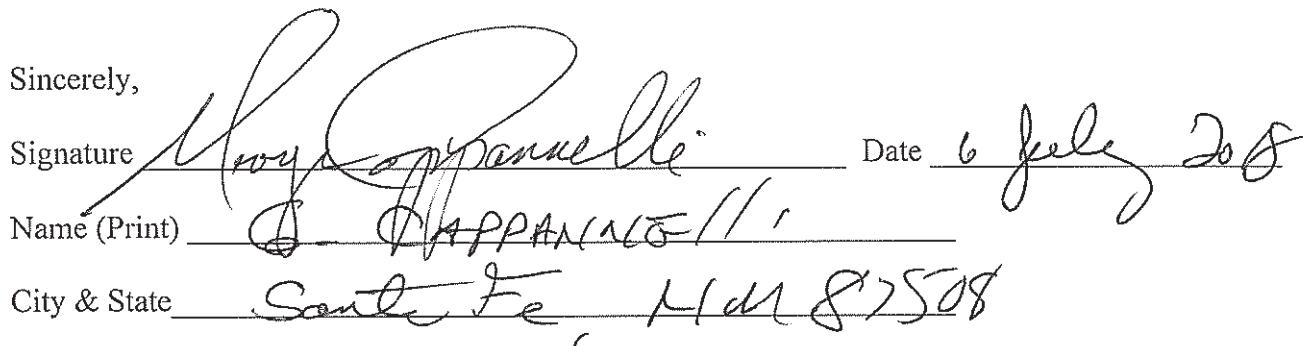 Sincerely,
Signature Cappannelli Date 6 July 2018
Name (Print) G. CAPPANNElli
City & State Santa Fe, NM 87508